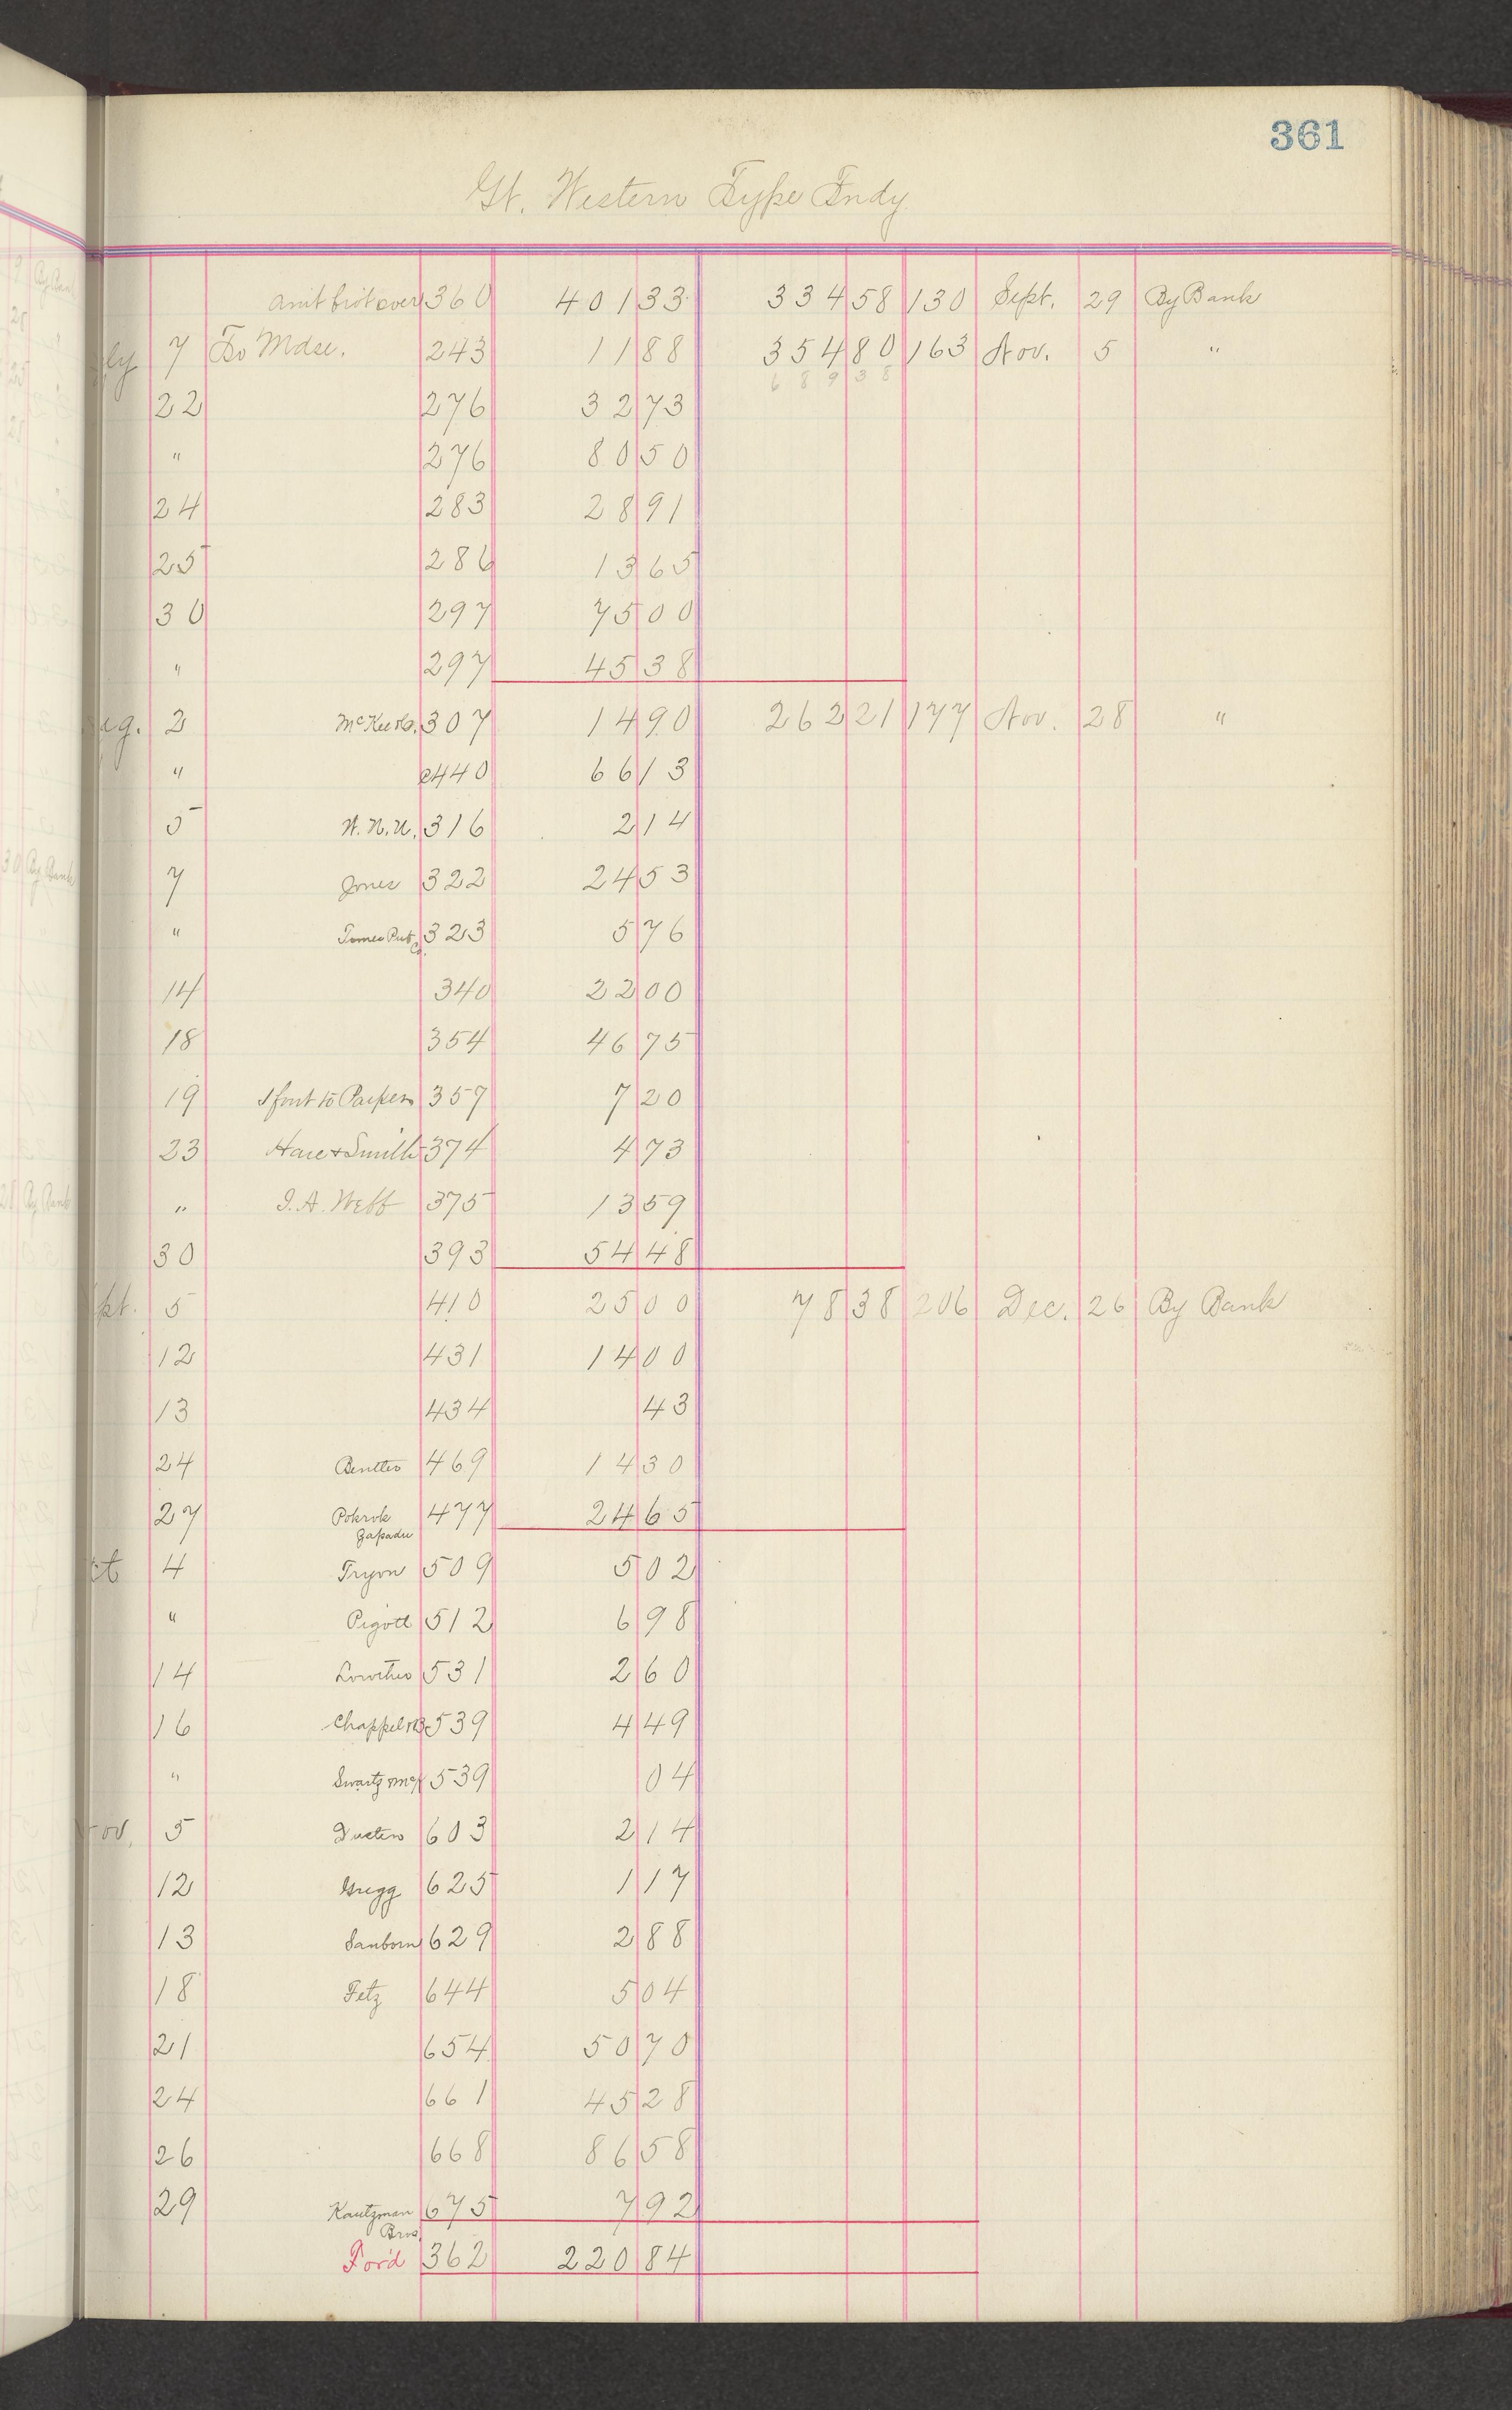 361
Gt. Western Type Fndy
amt brot over 360 401 33 334 58 130 Sept. 29 By Bank
ly 7 To Mdse. 243 11 88 354 80 163 Nov. 5 "
689 38
22 276 32 73
" 276 80 50
24 283 28 91
25 286 13 65
30 297 75 00
" 297 45 38
ug. 2 McKee & Co. 307 14 90 262 21 177 Nov. 28 "
" c440 66 13
5 W.N.U. 316 2 14
7 Jones 322 24 53
" Times Pub Co. 323 5 76
14 340 22 00
18 354 46 75
19 1 font to Parker 357 7 20
23 Hare & Smith 374 4 73
" I.A. Webb 375 13 59
30 393 54 48
pt. 5 410 25 00 78 38 206 Dec. 26 By Bank
12 431 14 00
13 434 43
24 469 14 30
27 Pokrok Zapadu 477 24 65
ct 4 Tryon 509 5 02
" Pigott 512 6 98
14 531 2 60
16 Chappel 539 4 49
" Swartz 539 04
ov. 5 603 2 14
12 Gregg 625 1 17
13 Sanborn 629 2 88
18 Fetz 644 5 04
21 654 50 70
24 661 45 28
26 668 86 58
29 Kautzman Bros. 675 7 92
For'd 362 220 84